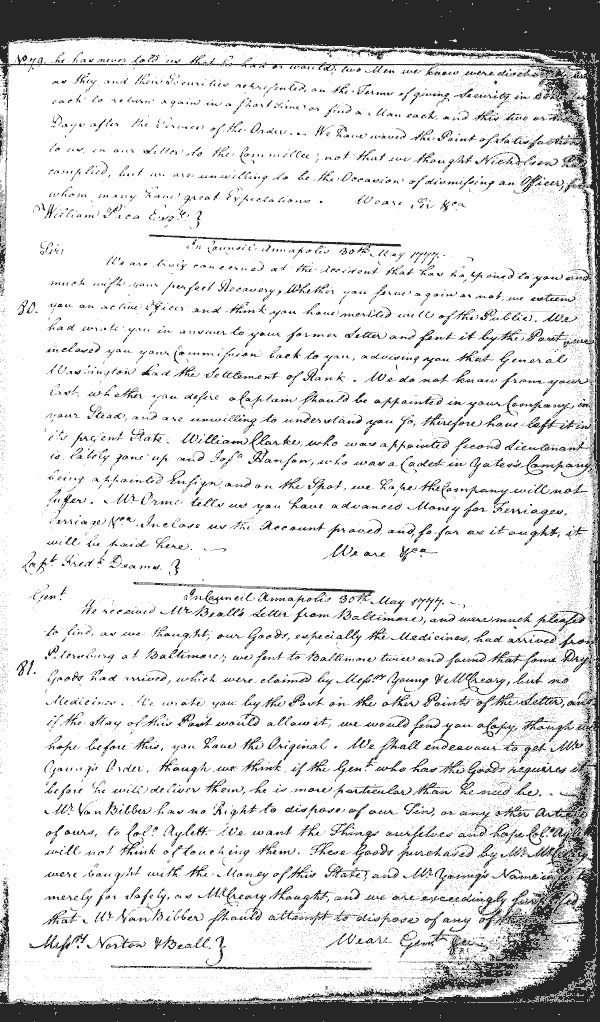 No 79. he has never told us that he had or would; two Men we know were discharged
as they and their Securities represented, on the Terms of giving Security in
each to return again in a short time or find a Man each, and this two or three
Days after the Finance of the Order. We have waved the Point of Satisfaction
to us, in our Letter to the Committee; not that we thought Nicholson had
complied, but we are unwilling to be the Occasion of dismissing an Officer, from
whom many have great Expectations. We are Sir &ca
William Paca Esqr. }
In Council Annapolis 30th May 1777.
Sir
We are truly concerned at the Accident that has happened to you and
much wish your perfect Recovery, Whether you serve again or not, we esteem
80. you an active Officer and think you have merited well of the Public. We
had wrote you in answer to your former Letter and sent it by the Post, we
inclosed you your Commission back to you, advising you that General
Washington had the Settlement of Rank. We do not know from your
last, whether you desire a Captain should be appointed in your Company, in
your Stead, and are unwilling to understand you so, therefore have left it in
its present State. William Clarke, who was appointed second Lieutenant
is lately gone up and Josa. Hanson, who was a Cadet in Yates's Company,
being appointed Ensign, and on the Spot, we hope the Company will not
suffer. Mr. Orme tells us you have advanced Money for Ferriages,
Ferriage &ca. Inclose us the Account proved and, so far as it ought, it
will be paid here. We are &ca
Capt. Fredk. Deams. }
In Council Annapolis 30th May 1777.
Gent.
We received Mr. Beall's Letter from Baltimore, and were much pleased
to find, as we thought, our Goods, especially the Medicines, had arrived from
Petersburg at Baltimore; we sent to Baltimore twice and found that some Dry
81. Goods had arrived, which were claimed by Messrs. Young & McCreary, but no
Medicines. We wrote you by the Post on the other Points of the Letter, and
if the Stay of this Post would allow it, we would send you a Copy, though we
hope before this, you have the Original. We shall endeavour to get Mr.
Young's Order, though we think, if the Gent. who has the Goods requires it
before he will deliver them, he is more particular than he need be.
Mr. Van Bibber has no Right to dispose of our Tin, or any other Article
of ours, to Colo. Aylett. We want the Things ourselves and hope Colo. Aylett
will not think of touching them. These Goods purchased by Mr. McCreary
were bought with the Money of this State, and Mr. Young's Name
merely for Safety, as McCreary thought, and we are exceedingly surprised
that Mr. Van Bibber should attempt to dispose of any of
Messrs. Norton & Beall } We are Gent. &ca